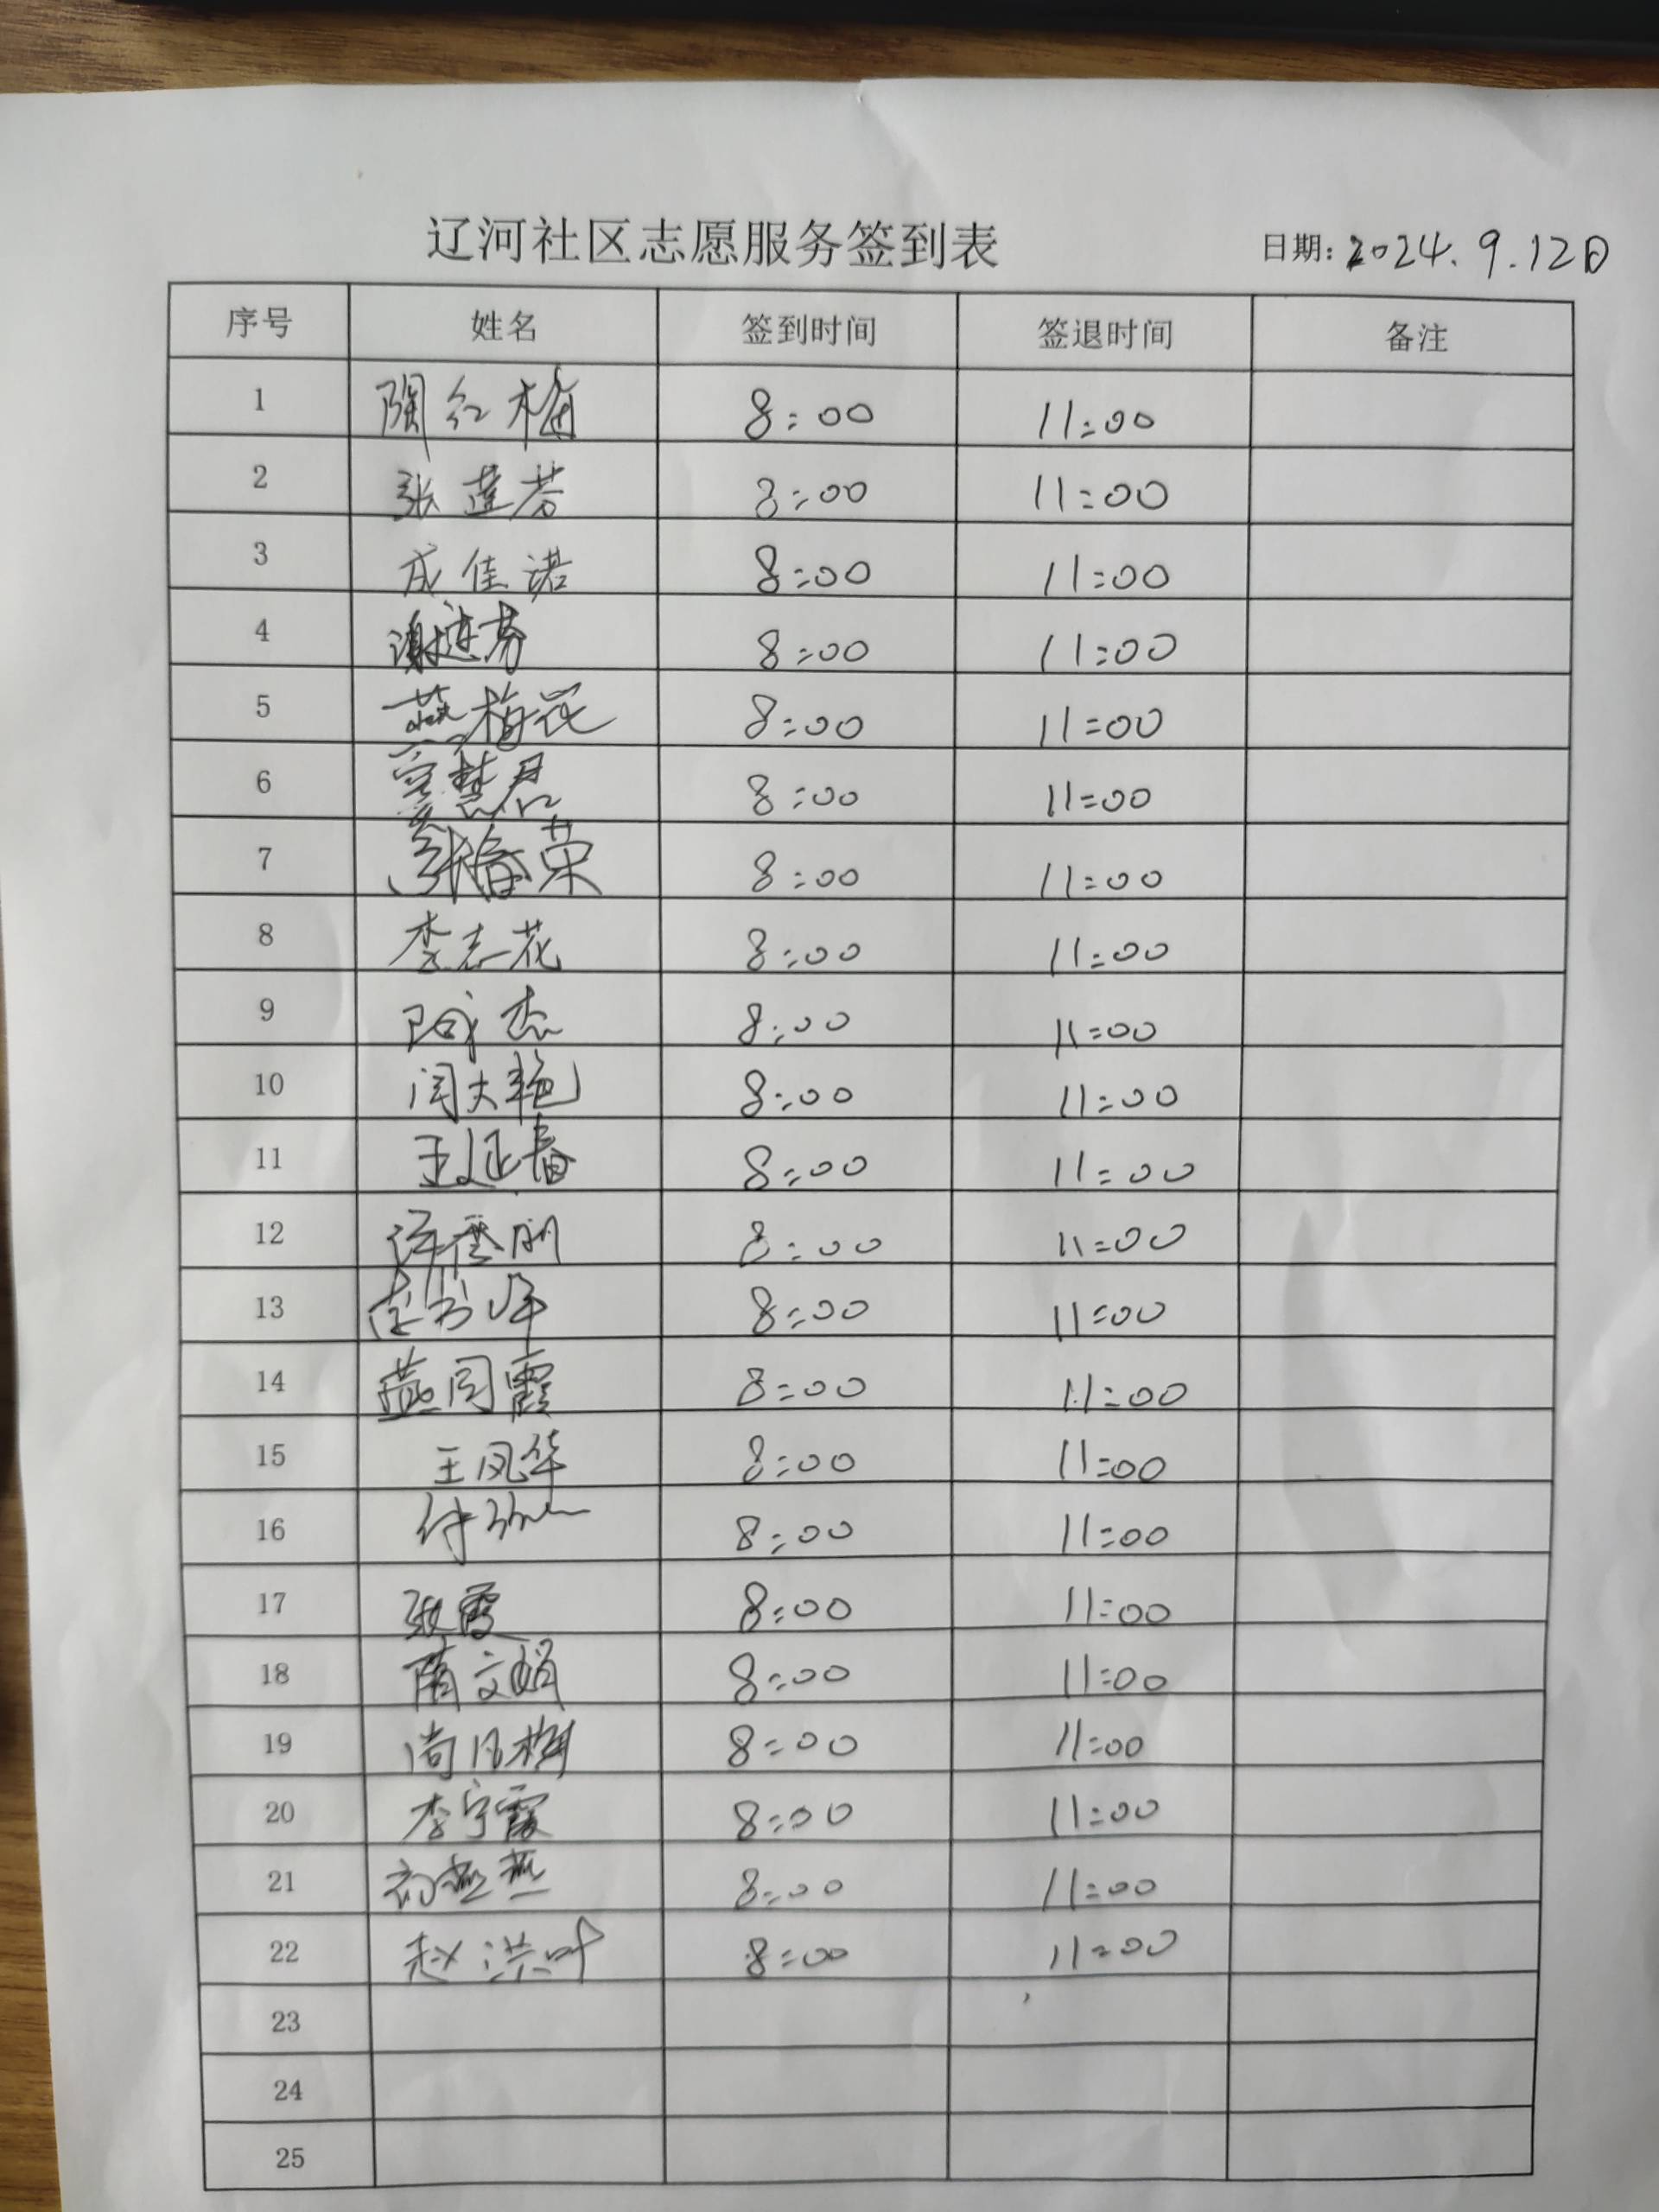 辽河社区志愿服务签到表
日期: 2024.9.12日
序号 姓名 签到时间 签退时间 备注
1 陶红梅 8:00 11:00
2 张莲芳 8:00 11:00
3 成佳诺 8:00 11:00
4 谢莲芳 8:00 11:00
5 燕梅花 8:00 11:00
6 窦慧君 8:00 11:00
7 张春荣 8:00 11:00
8 李志花 8:00 11:00
9 8:00 11:00
10 闫大艳 8:00 11:00
11 王延春 8:00 11:00
12 8:00 11:00
13 8:00 11:00
14 燕同霞 8:00 11:00
15 王凤华 8:00 11:00
16 8:00 11:00
17 张霞 8:00 11:00
18 蔺文娟 8:00 11:00
19 8:00 11:00
20 李宁霞 8:00 11:00
21 8:00 11:00
22 赵洪叶 8:00 11:00
23
24
25